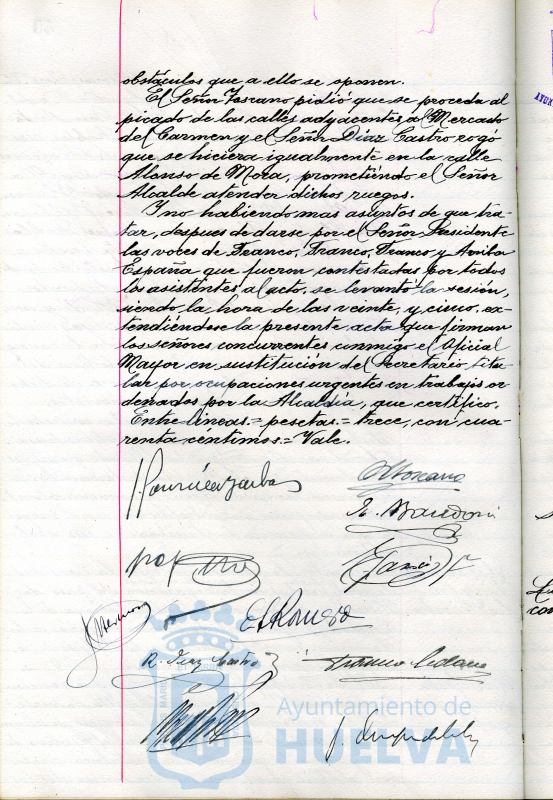 obstáculos que a ello se oponen.
El Señor Toscano pidió que se proceda al
picado de las calles adyacentes al Mercado
del Carmen y el Señor Díaz Castro rogó
que se hiciera igualmente en la calle
Alonso de Mora, prometiendo el Señor
Alcalde atender dichos ruegos.
Y no habiendo mas asuntos de que tra-
tar, despues de darse por el Señor Presidente
las voces de Franco, Franco, Franco y Arriba
España que fueron contestadas por todos
los asistentes al acto, se levantó la sesión,
siendo la hora de las veinte, y cinco, ex-
tendiéndose la presente acta que firman
los señores concurrentes conmigo el Oficial
Mayor en sustitución del Secretario titu-
lar por ocupaciones urgentes en trabajos or-
denados por la Alcaldía, que certifico.
Entre líneas = pesetas = trece, con cua-
renta centimos = Vale.
Toscano
E. Romero
R. Diaz Castro
Ayuntamiento de
HUELVA